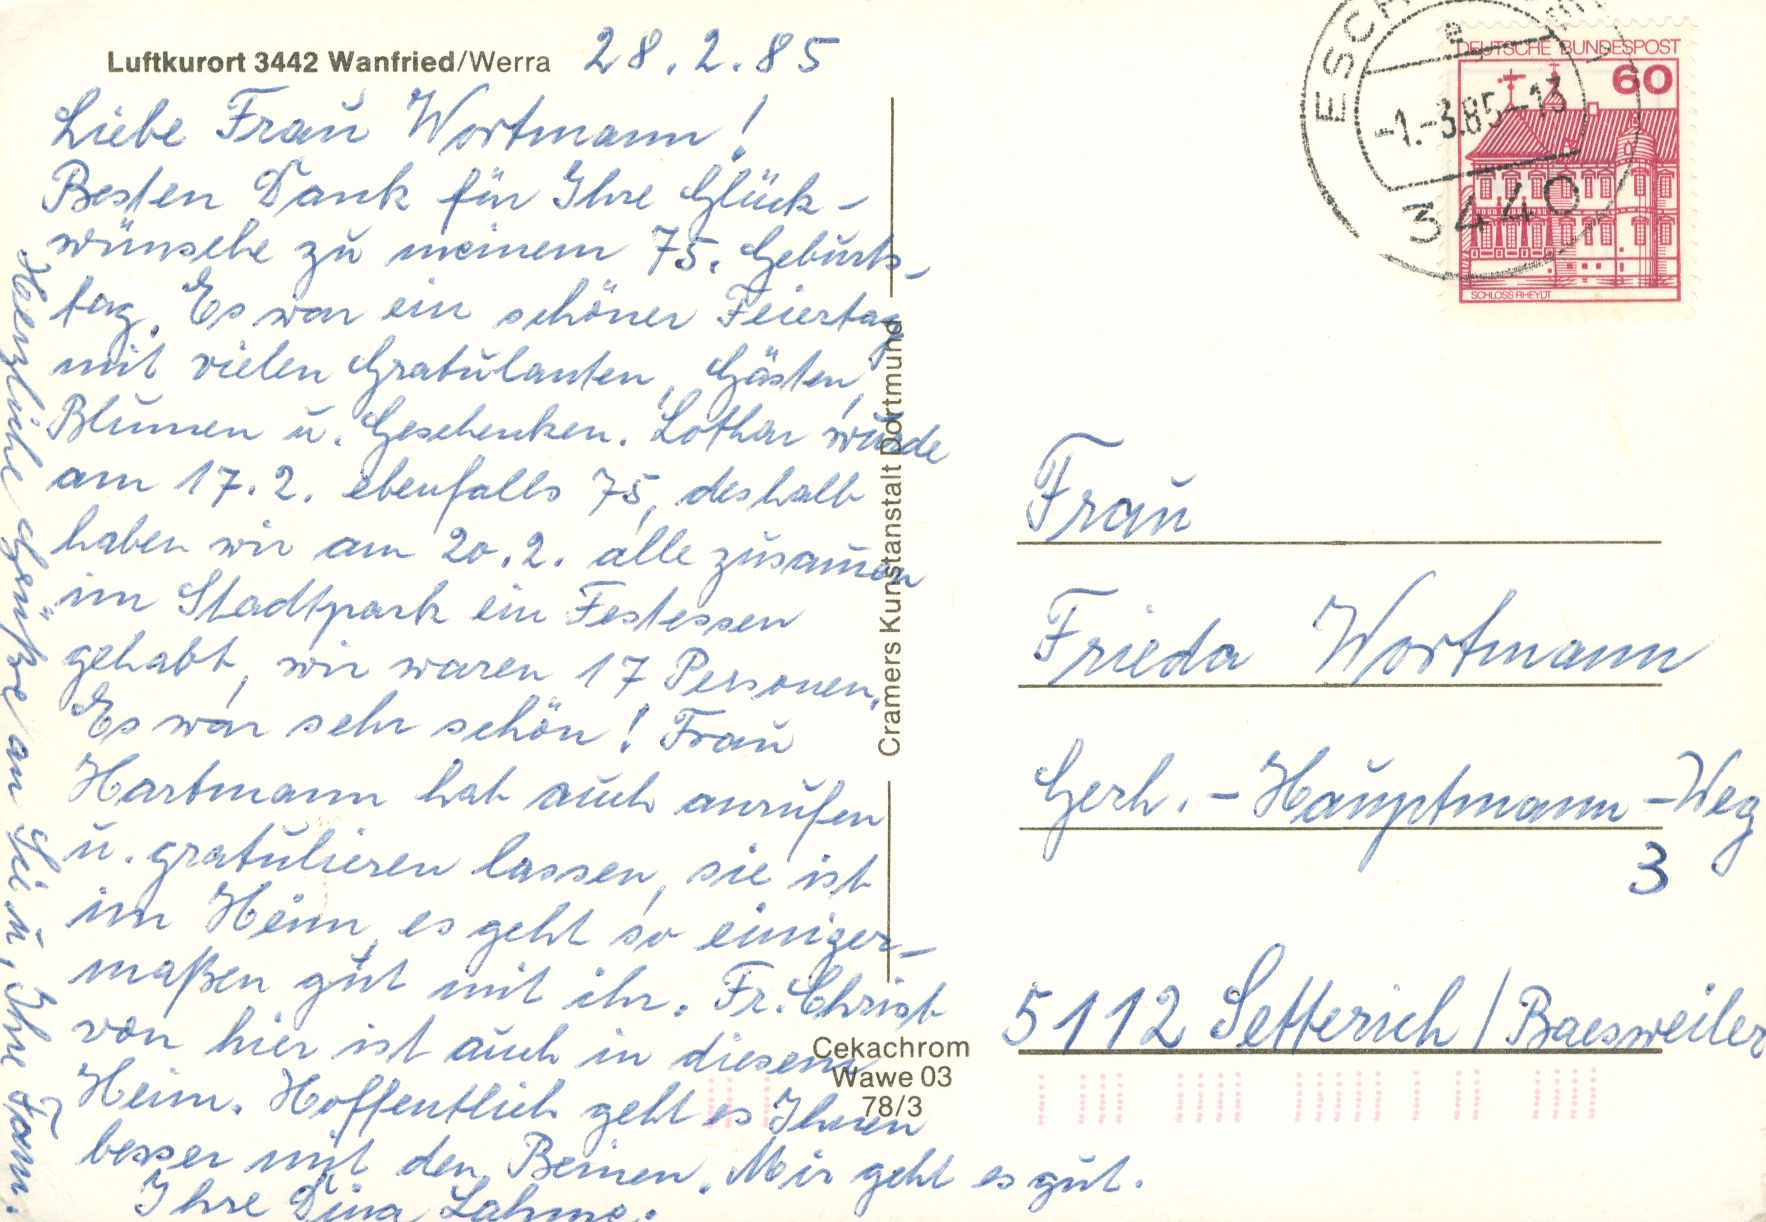 Luftkurort 3442 Wanfried/Werra
28.2.85
Liebe Frau Wortmann!
Besten Dank für Ihre Glück-
wünsche zu meinem 75. Geburts-
tag. Es war ein schöner Feiertag
mit vielen Gratulanten, Gästen,
Blumen u. Geschenken. Lothar wurde
am 17.2. ebenfalls 75, deshalb
haben wir am 20.2. alle zusamen
im Stadtpark ein Festessen
gehabt, wir waren 17 Personen.
Es war sehr schön! Frau
Hartmann hat auch anrufen
u. gratulieren lassen, sie ist
im Heim, es geht so einiger-
maßen gut mit ihr. Fr. Christ
von hier ist auch in diesem
Heim. Hoffentlich geht es Ihnen
besser mit den Beinen. Mir geht es gut.
Ihre Dina Lahme.
Herzliche Grüße an Sie u. Ihre Fam.
Cramers Kunstanstalt Dortmund
Cekachrom
Wawe 03
78/3
DEUTSCHE BUNDESPOST
60
SCHLOSS RHEYDT
ESCH
-1.-3.85-13
3440
Frau
Frieda Wortmann
Gerh.-Hauptmann-Weg
3
5112 Setterich/Baesweiler